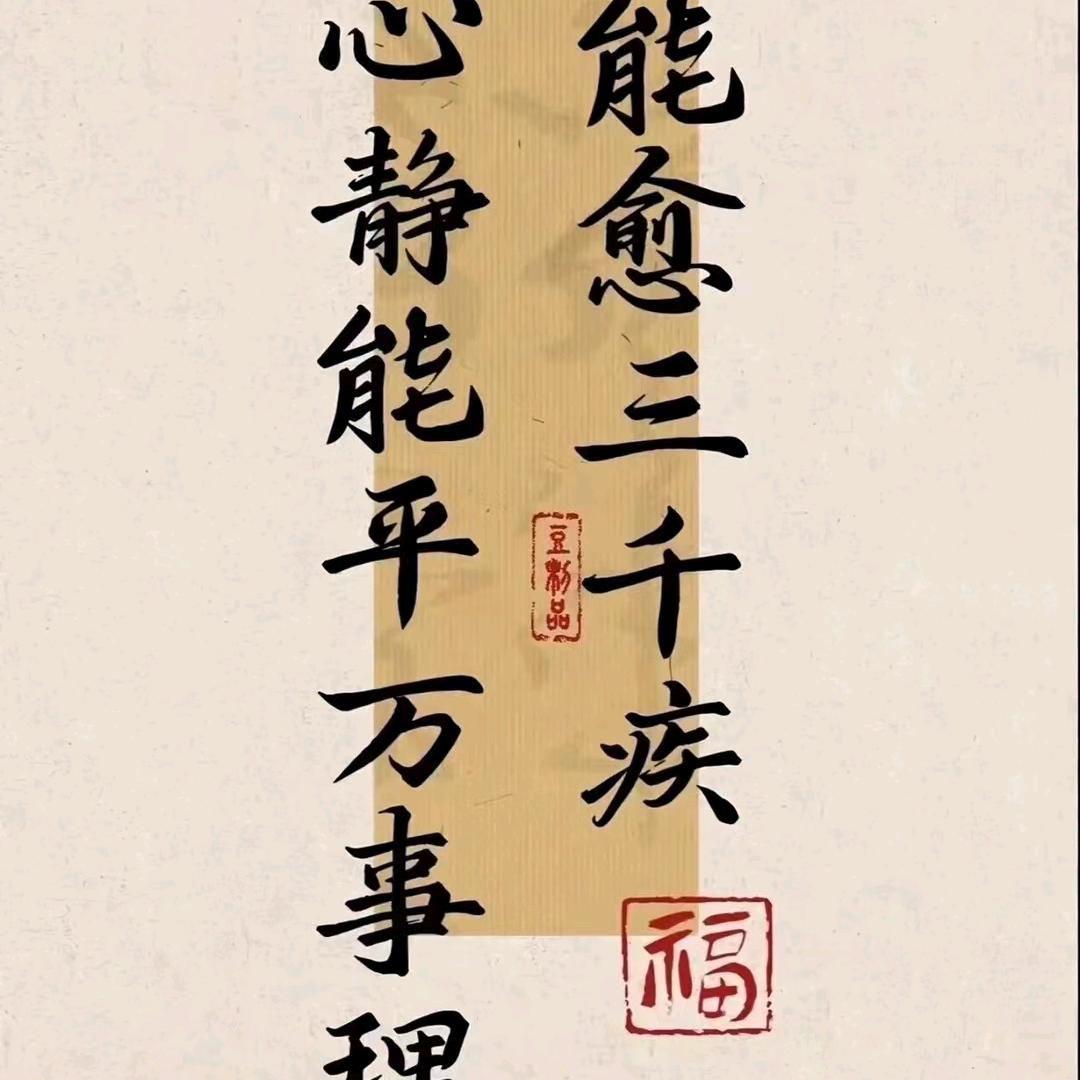 能愈三千疾
心静能平万事理
豆制品
福